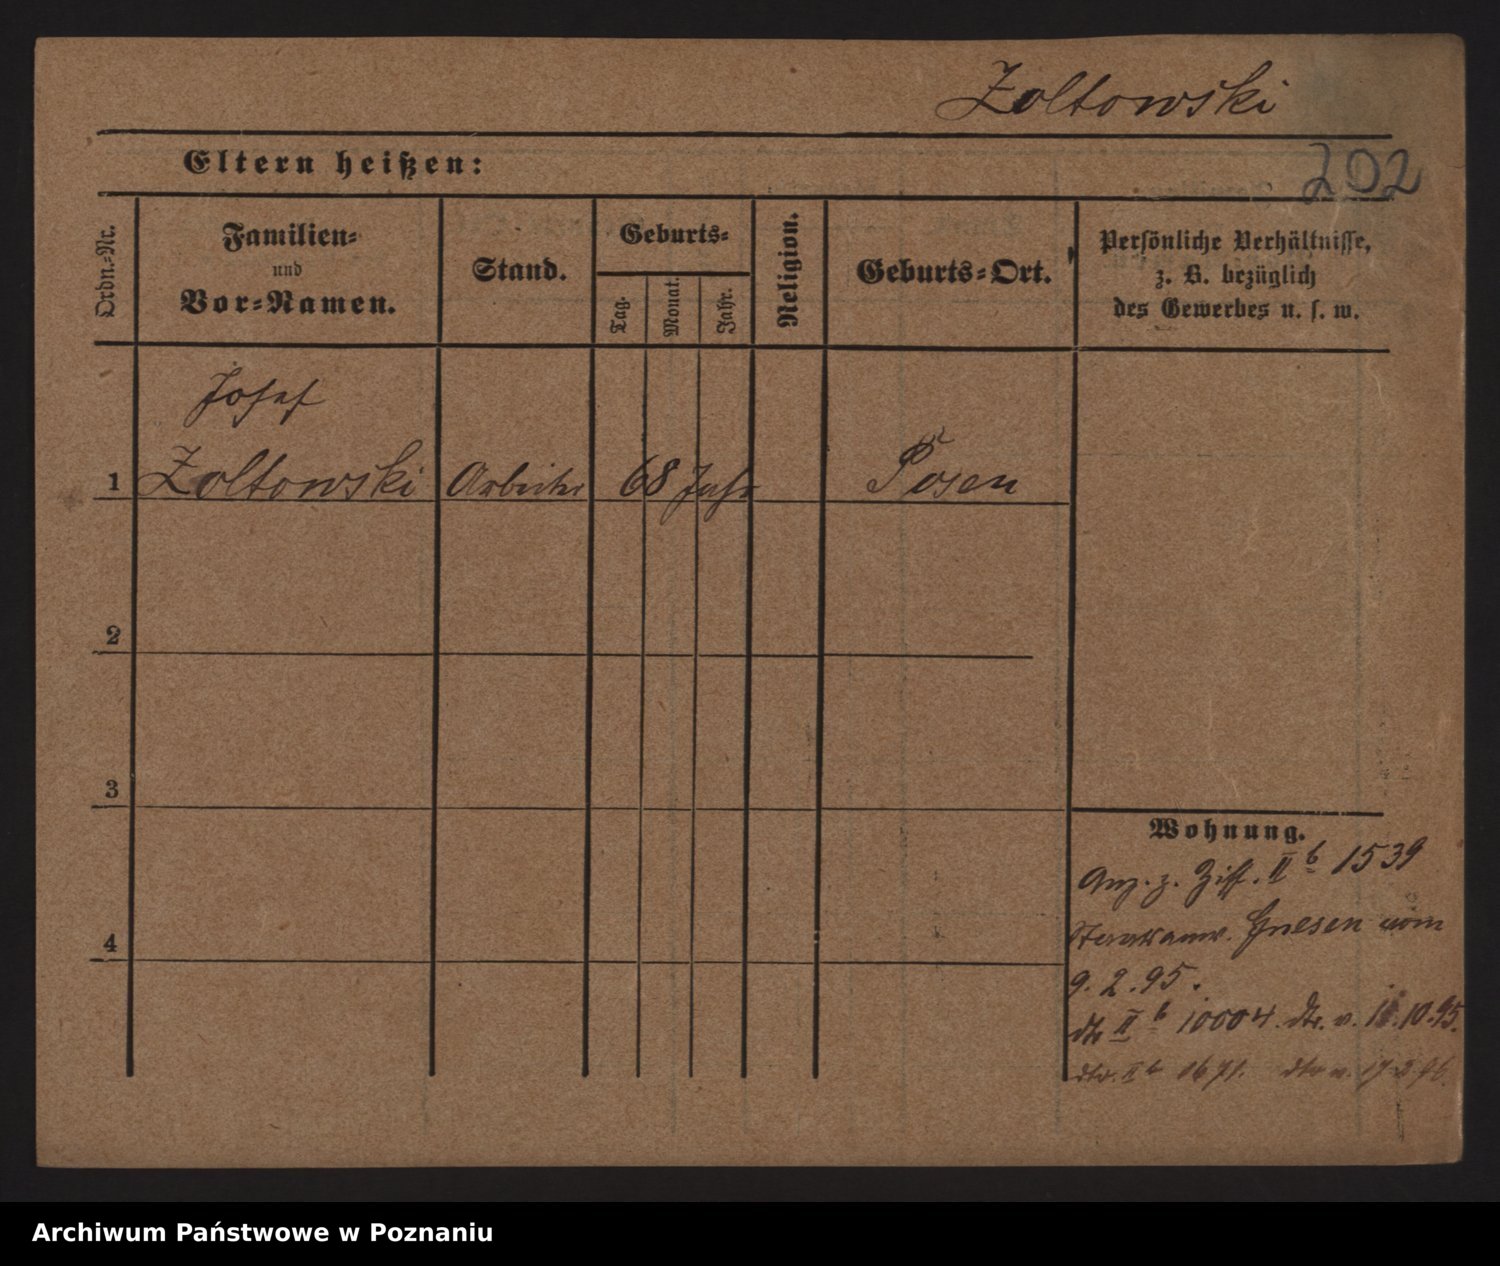 Zoltowski
Eltern heißen:
202
Ordn.-Nr.
Familien-
und
Vor-Namen.
Stand.
Geburts-
Tag.
Monat.
Jahr.
Religion.
Geburts-Ort.
Persönliche Verhältnisse,
z. B. bezüglich
des Gewerbes u. s. w.
Josef
1 Zoltowski Arbeiter 68 Jahr Posen
2
3
4
Wohnung.
Anz. z. Ziff. II b 1539
Staatsanw. Gnesen vom
9. 2. 95.
dto II b 10004. dto. v. 10.95.
dto. II b 1671. dto v.
Archiwum Państwowe w Poznaniu